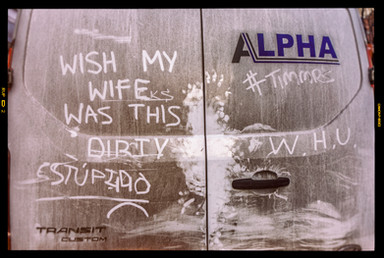 WISH MY
WIFE
WAS THIS
DIRTY
ESTÚPIDO
ALPHA
W.H.U.
TRANSIT
CUSTOM